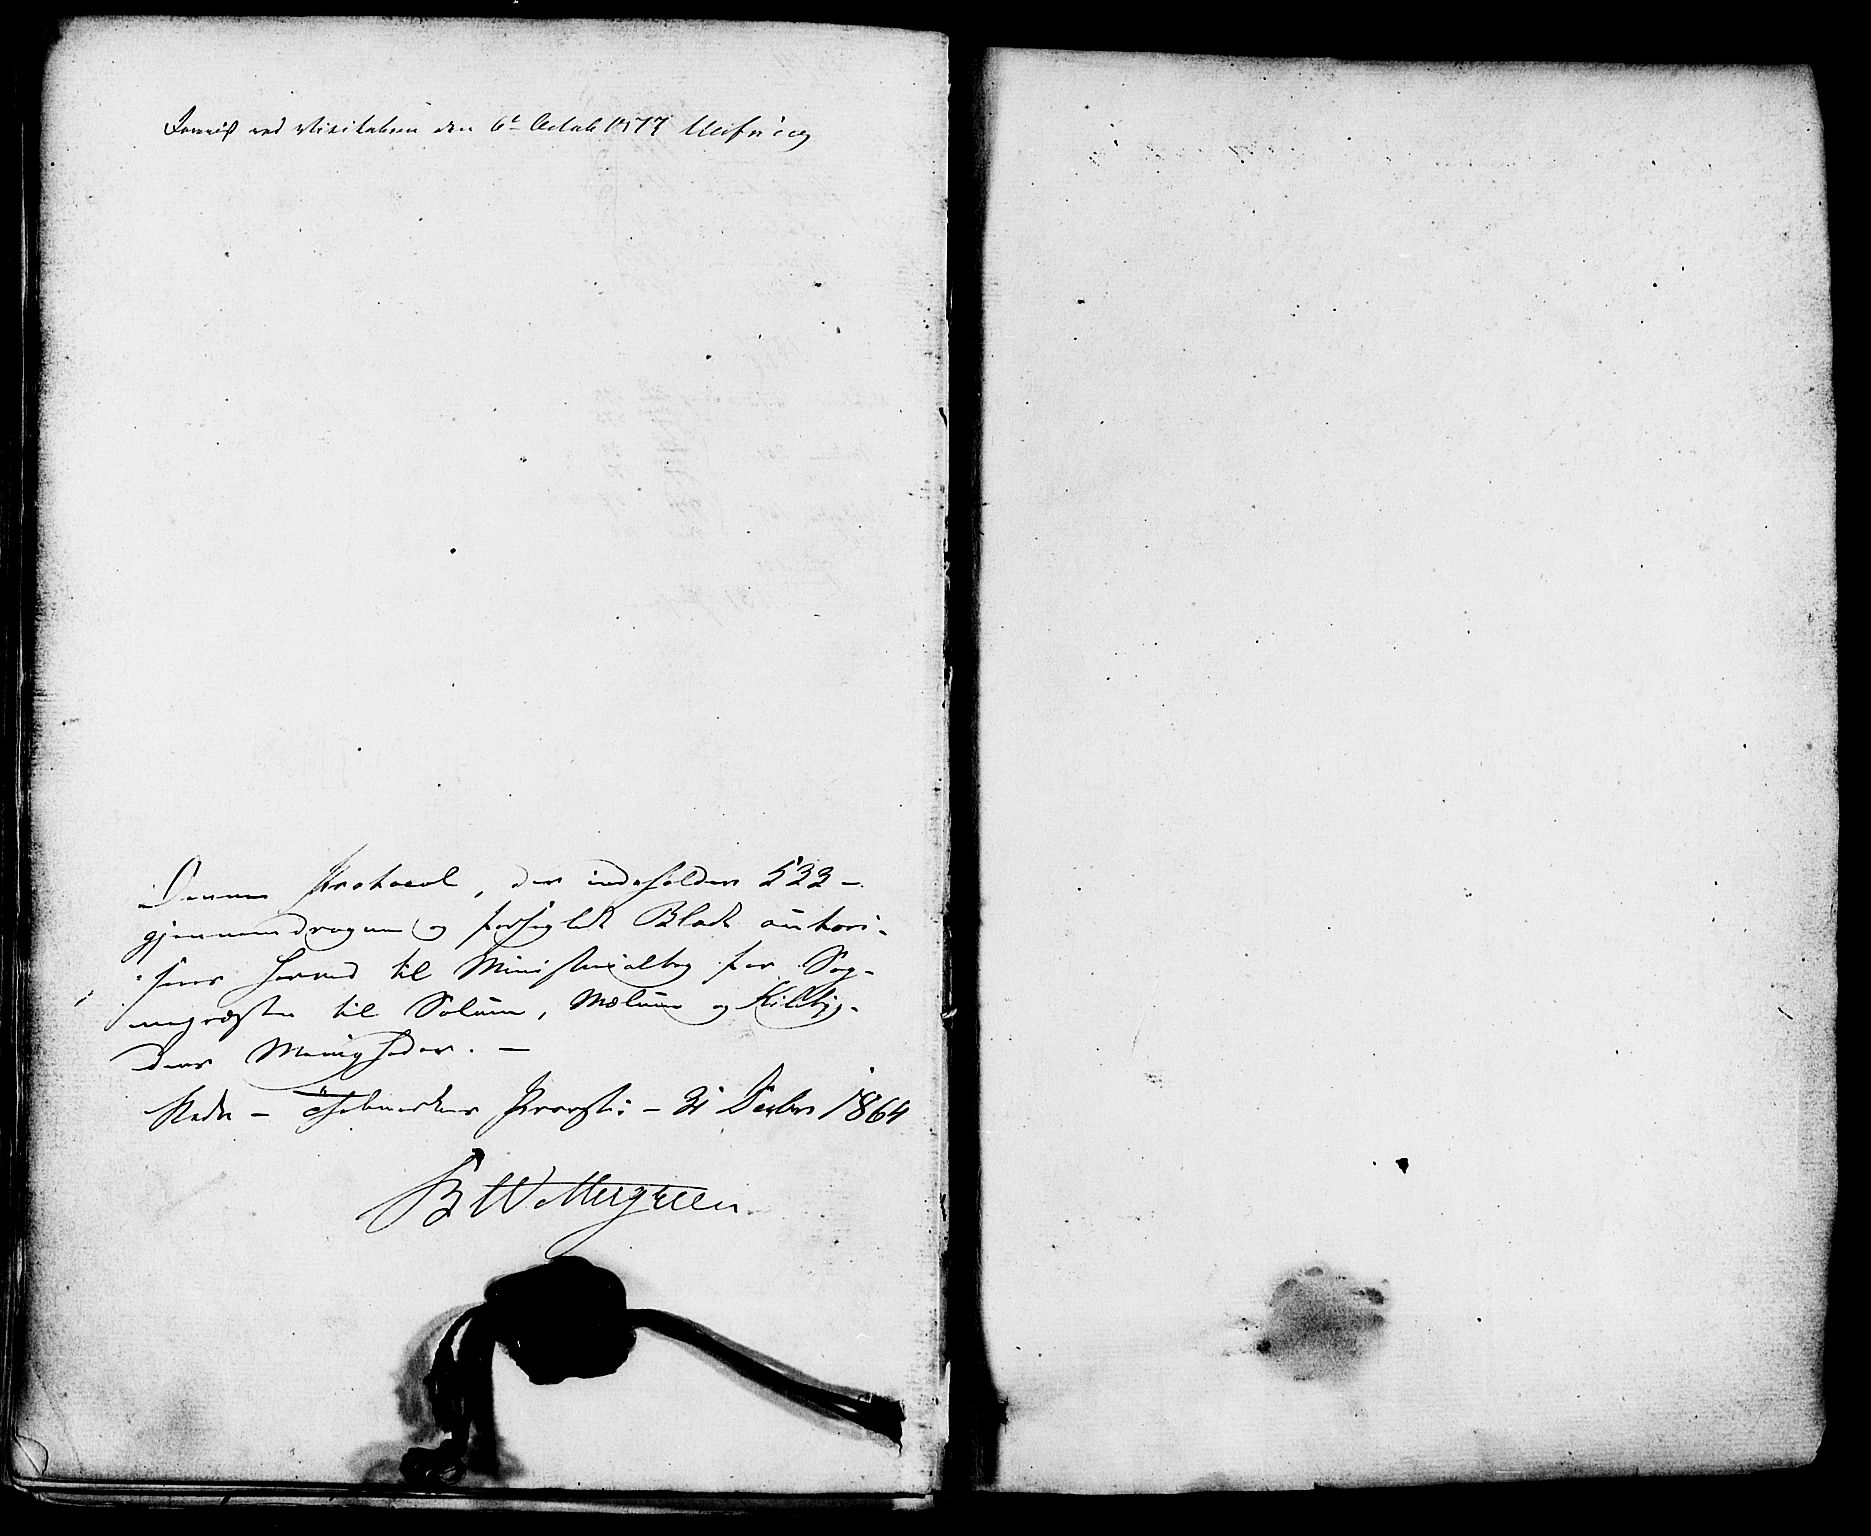 Foreviist ved Visitatsen den 6te Octob 1877
Denne Protocol, der indeholder 533 –
gjennemdragne og forseglede Blade autori-
seres herved til Ministerialbog for Sog-
nepræsten til Solum, Mælum og Kilebyg-
dens Menigheder. –
Nedre – Thelemarkens Provsti – 31 Decbr 1864
B Wettergreen